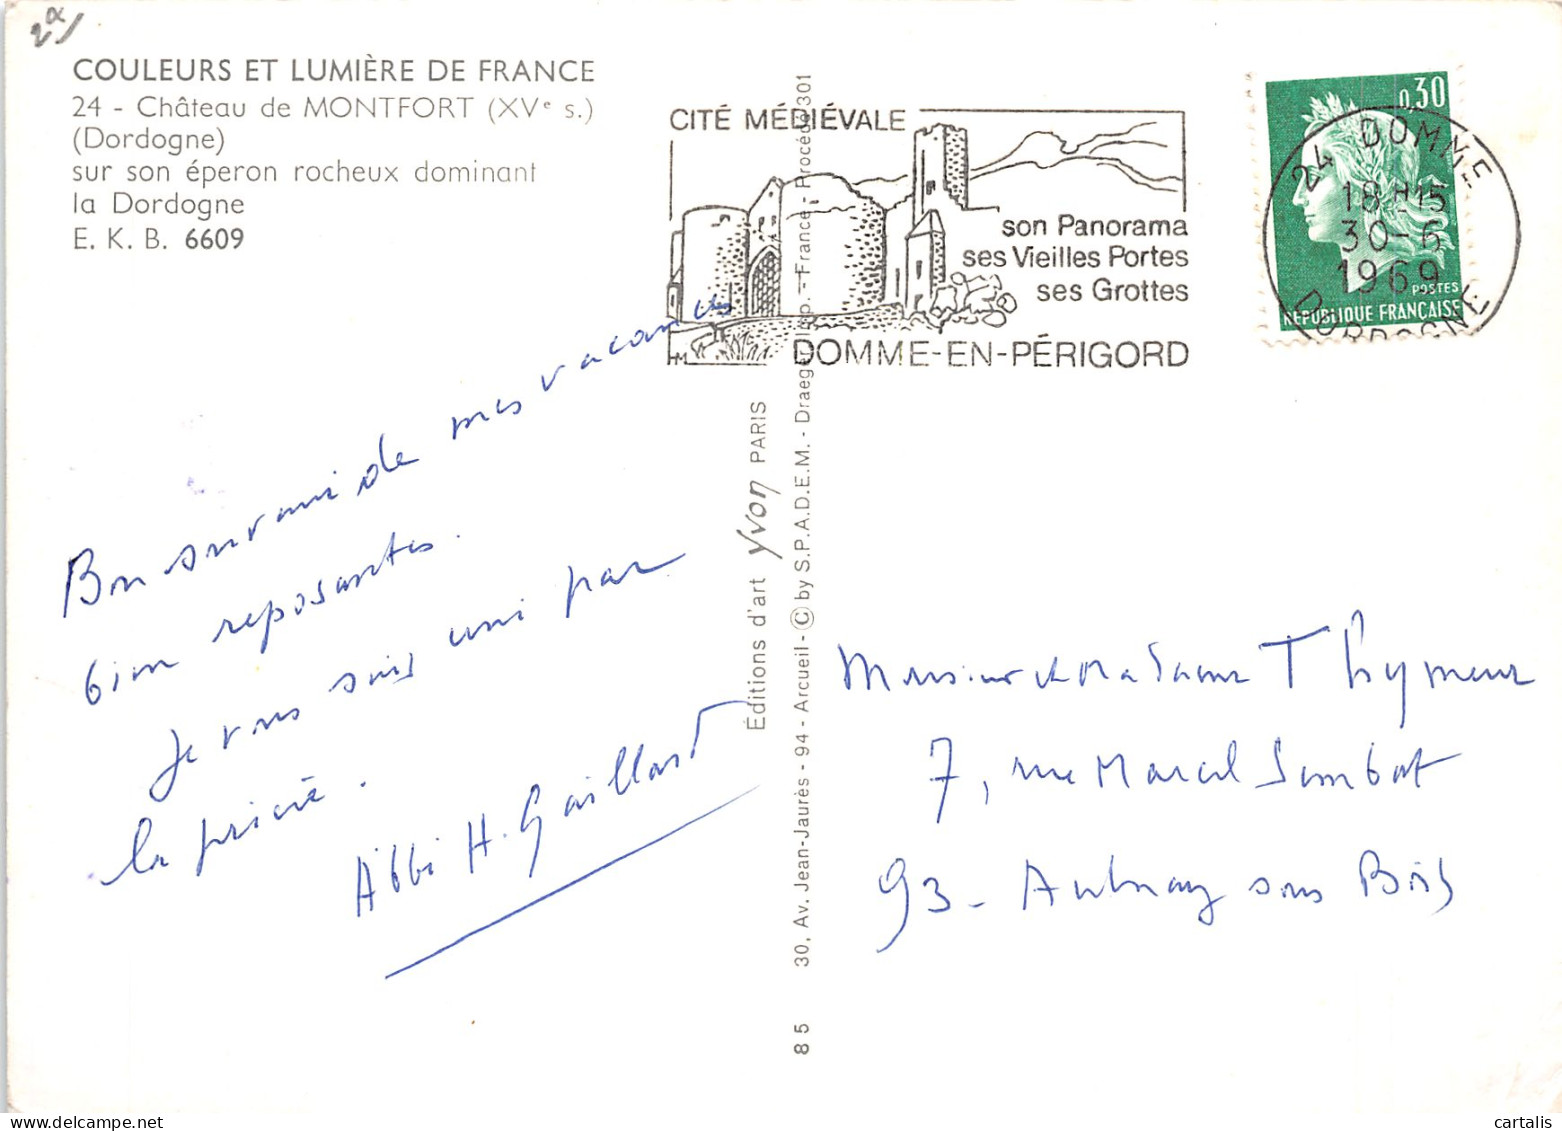 2
COULEURS ET LUMIÈRE DE FRANCE
24 - Château de MONTFORT (XVe s.)
(Dordogne)
sur son éperon rocheux dominant
la Dordogne
E. K. B. 6609
Bon souvenir de mes vacances
bien reposantes.
Je vous suis uni par
la prière.
Abbé H. Gaillard
Éditions d'art Yvon PARIS
30, Av. Jean-Jaurès - 94 - Arcueil - © by S.P.A.D.E.M. - Draeger Imp. - France - Procédé 301
85
CITÉ MÉDIÉVALE
son Panorama
ses Vieilles Portes
ses Grottes
HM
DOMME-EN-PÉRIGORD
0,30
POSTES
RÉPUBLIQUE FRANÇAISE
24 DOMME
18H15
30-6
1969
DORDOGNE
Monsieur et Madame Thymeur
7, rue Marcel Sembat
93 - Aulnay sous Bois
cartalis